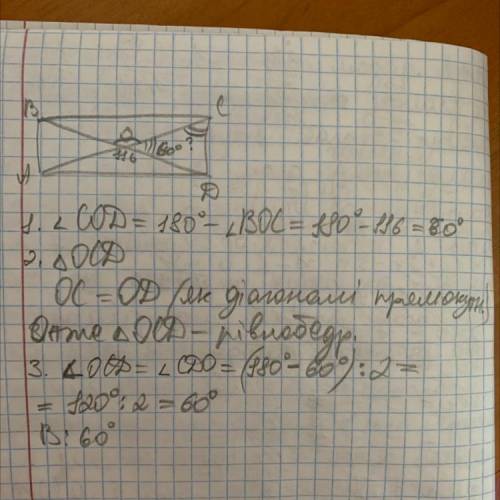 B C
O
116 60° ?
A D
1. ∠COD = 180° - ∠BOC = 180° - 116 = 60°
2. △OCD
OC = OD (як діагоналі прямокутн.)
Отже △OCD - рівнобедр.
3. ∠OCD = ∠CDO = (180° - 60°) : 2 =
= 120° : 2 = 60°
В: 60°